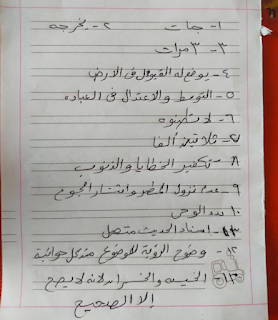 ١- جات ٢- يخرجه
٣- ٣ مرات
٤- يوضع له القبول فى الأرض
٥- التوسط والاعتدال فى العباده
٦- لا
٧- ثلاثين ألفا
٨- تكفير الخطايا والذنوب
٩- عدم نزول المطر وانتشار الجوع
١٠- بدء الوحى
١١- اسناد الحديث متصل
١٢- وضوح الرؤية للموضوع من كل جوانبه
١٣- لانه لا يصح
إلا الصحيح